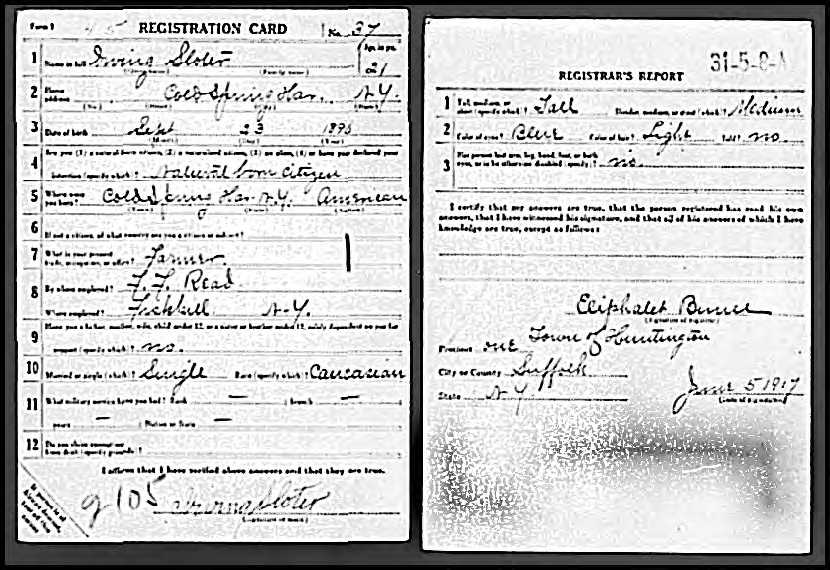 Form 1 REGISTRATION CARD No. 37
1 Name in full Irving Sloter Age, in yrs. 21
(Given name) (Family name)
2 Home address Cold Spring Har. N.Y.
(No.) (Street) (City) (State)
3 Date of birth Sept 23
(Month) (Day) (Year)
Are you (1) a natural born citizen, (2) a naturalized citizen, (3) an alien, (4) or have you declared your
4 intention (specify which)? Natural born citizen
5 Where were you born? Cold Spring Har. N.Y. American
(Town) (State) (Nation)
6 If not a citizen, of what country are you a citizen or subject?
7 What is your present trade, occupation, or office? Farmer
8 By whom employed? F. F. Read
Where employed? Fishkill N.Y.
9 Have you a father, mother, wife, child under 12, or a sister or brother under 12, solely dependent on you for
support (specify which)? no.
10 Married or single (which)? Single Race (specify which)? Caucasian
11 What military service have you had? Rank — ; branch —
years — ; Nation or State —
12 Do you claim exemption from draft (specify grounds)?
I affirm that I have verified above answers and that they are true.
9105 Irving Sloter
(Signature or mark)
31-5-8-A
REGISTRAR'S REPORT
1 Tall, medium, or short (specify which)? Tall Slender, medium, or stout (which)? Medium
2 Color of eyes? Blue Color of hair? Light Bald? no.
3 Has person lost arm, leg, hand, foot, or both eyes, or is he otherwise disabled (specify)? no.
I certify that my answers are true, that the person registered has read his own
answers, that I have witnessed his signature, and that all of his answers of which I have
knowledge are true, except as follows:
Eliphalet
(Signature of registrar)
Precinct one Town of Huntington
City or County Suffolk
State N.Y. June 5 1917
(Date of registration)